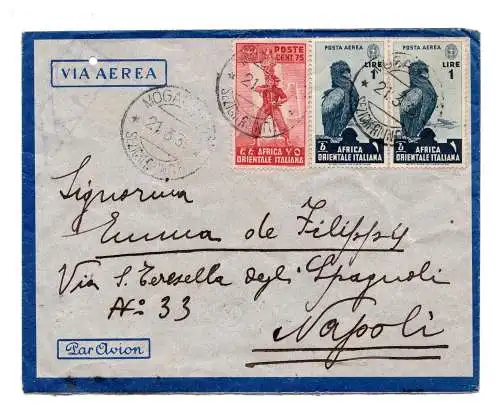 VIA AEREA
POSTE
CENT 75
AFRICA
ORIENTALE ITALIANA
POSTA AEREA
LIRE
1
AFRICA
ORIENTALE ITALIANA
POSTA AEREA
LIRE
1
AFRICA
ORIENTALE ITALIANA
21.3.3
Signorina
Emma de Filippy
Via S. Teresella degli Spagnoli
No 33
Napoli
Par Avion